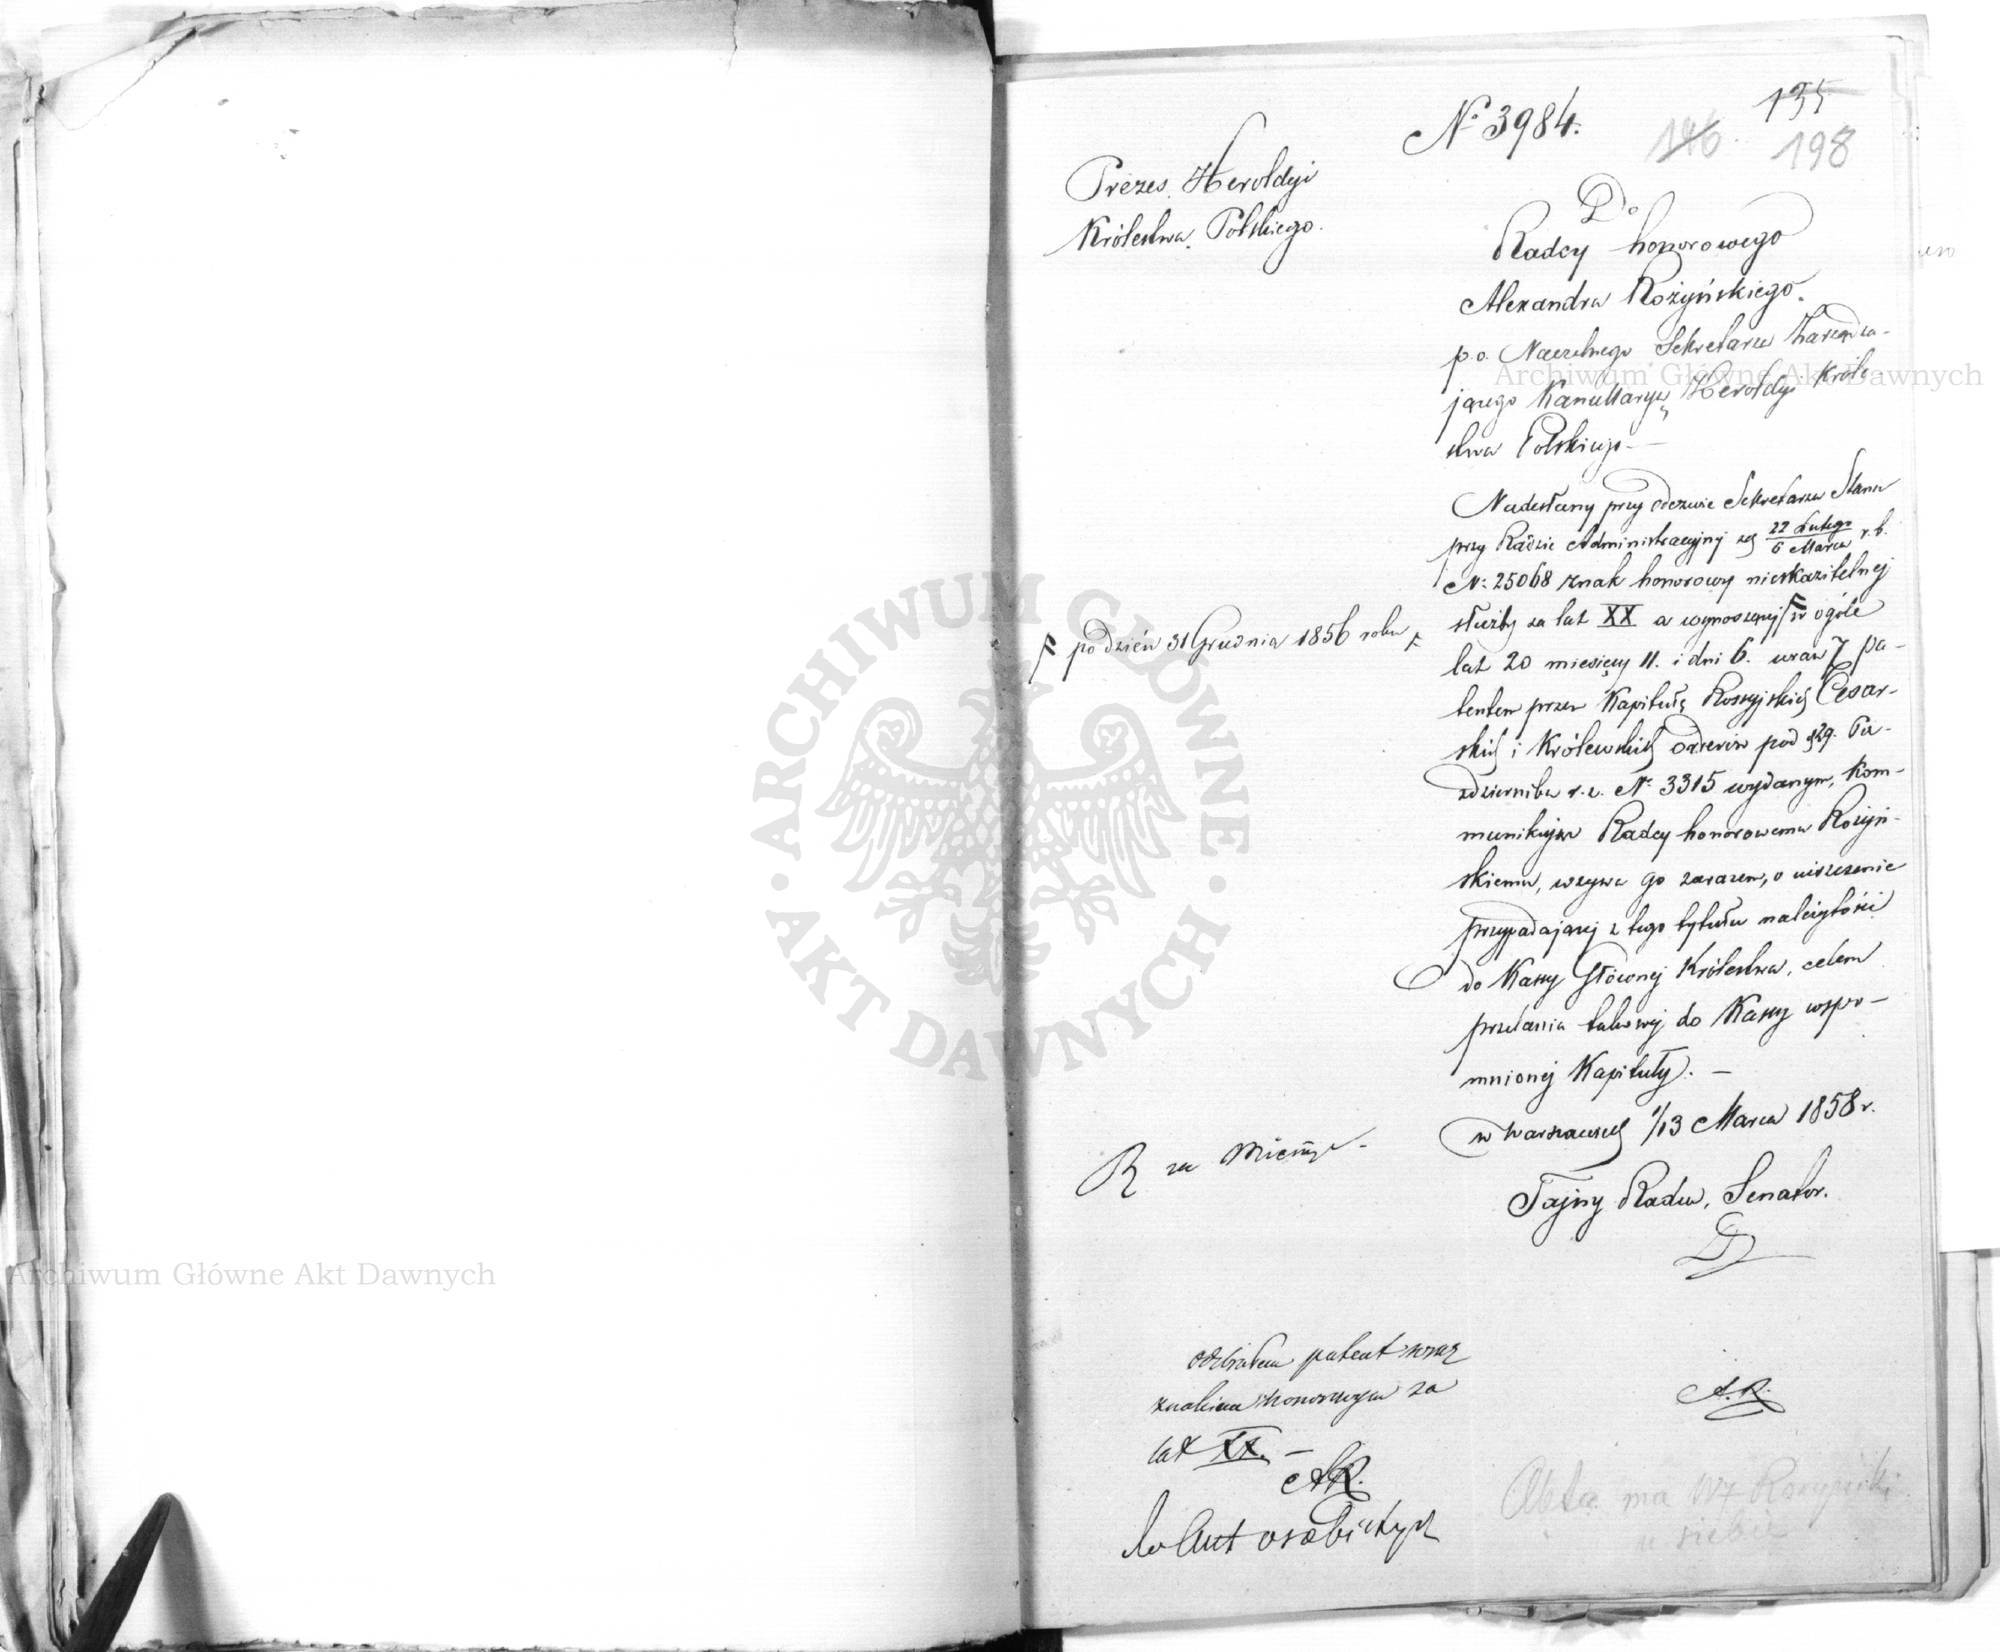 No 3984.
135
146.
198
Prezes Heroldyi
Królestwa Polskiego.
Do
Radcy honorowego
Alexandra Rożyńskiego.
p.o. Naczelnego Sekretarza Zarządza-
jącego Kancellaryą Heroldyi Króle-
stwa Polskiego —
Nadesłany przy odezwie Sekretarza Stanu
przy Radzie Administracyjnej z d. 22 Lutego / 6 Marca r. b.
No 25068 znak honorowy nieskazitelnej
służby za lat XX a wynoszącej F w ogóle
F po dzień 31 Grudnia 1856 roku F
lat 20 miesięcy 11. i dni 6. wraz z pa-
tentem przez Kapitułę Rossyjskich Cesar-
skich i Królewskich orderów pod d. 29. Pa-
ździernika r. z. No 3315 wydanym, kom-
munikując Radcy honorowemu Rożyń-
skiemu, wzywa go zarazem, o uiszczenie
przypadającej z tego tytułu należytości
do Kassy Głównej Królestwa, celem
przesłania takowej do Kassy wspo-
mnionej Kapituły. —
w Warszawie d. 1/13 Marca 1858 r.
R za
Tajny Radca, Senator.
odebrałem patent wraz
znakiem honorowym za
lat XX. —
AR.
A.R.
do Akt osobistych
Akta ma WJ Rożyński
u siebie
Archiwum Główne Akt Dawnych
Archiwum Główne Akt Dawnych
ARCHIWUM GŁÓWNE · AKT DAWNYCH ·